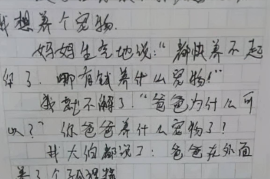 我想养个宠物.
妈妈生气地说:“都快养不起
你了.哪有钱养什么宠物!”
我就不解了!“爸爸为什么可
以?”你爸爸养什么宠物了?
我大伯都说了:爸爸在外面
养了个狐狸精